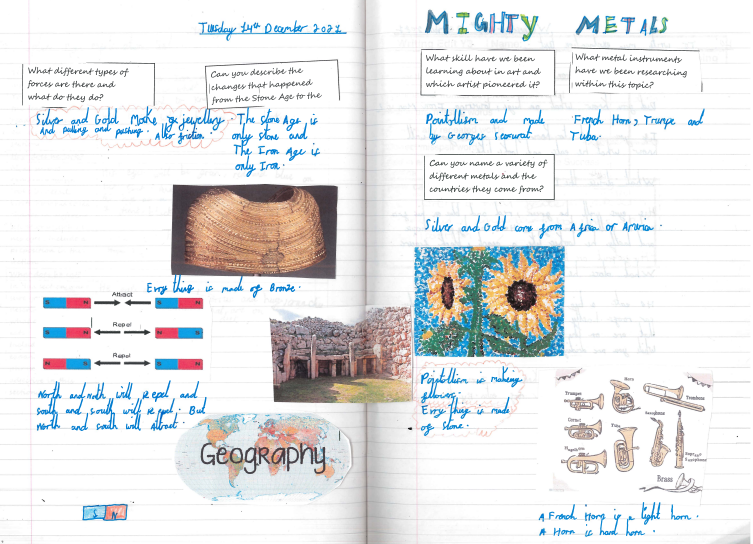 Tuesday 14th December 2021
What different types of
forces are there and
what do they do?
Can you describe the
changes that happened
from the Stone Age to the
Silver and Gold Make jewellery.
And pulling and pushing. Also friction.
The Stone Age is
only stone and
The Iron Age is
only Iron.
Every thing is made of Bronze.
Attract
S N S N
Repel
S N N S
Repel
N S S N
North and north will repel and
south and south will repel. But
North and south will attract.
Geography
S N
MIGHTY METALS
What skill have we been
learning about in art and
which artist pioneered it?
What metal instruments
have we been researching
within this topic?
Pointillism and made
by Georges
French Horn, Trumpe and
Tuba.
Can you name a variety of
different metals and the
countries they come from?
Silver and Gold come from Africa or
Pointillism is making
Every thing is made
of stone.
Trumpet
Horn
Trombone
Cornet
Tuba
Saxophone
Soprano
Saxophone
Brass
A French Horn is a light horn.
A Horn is hard horn.